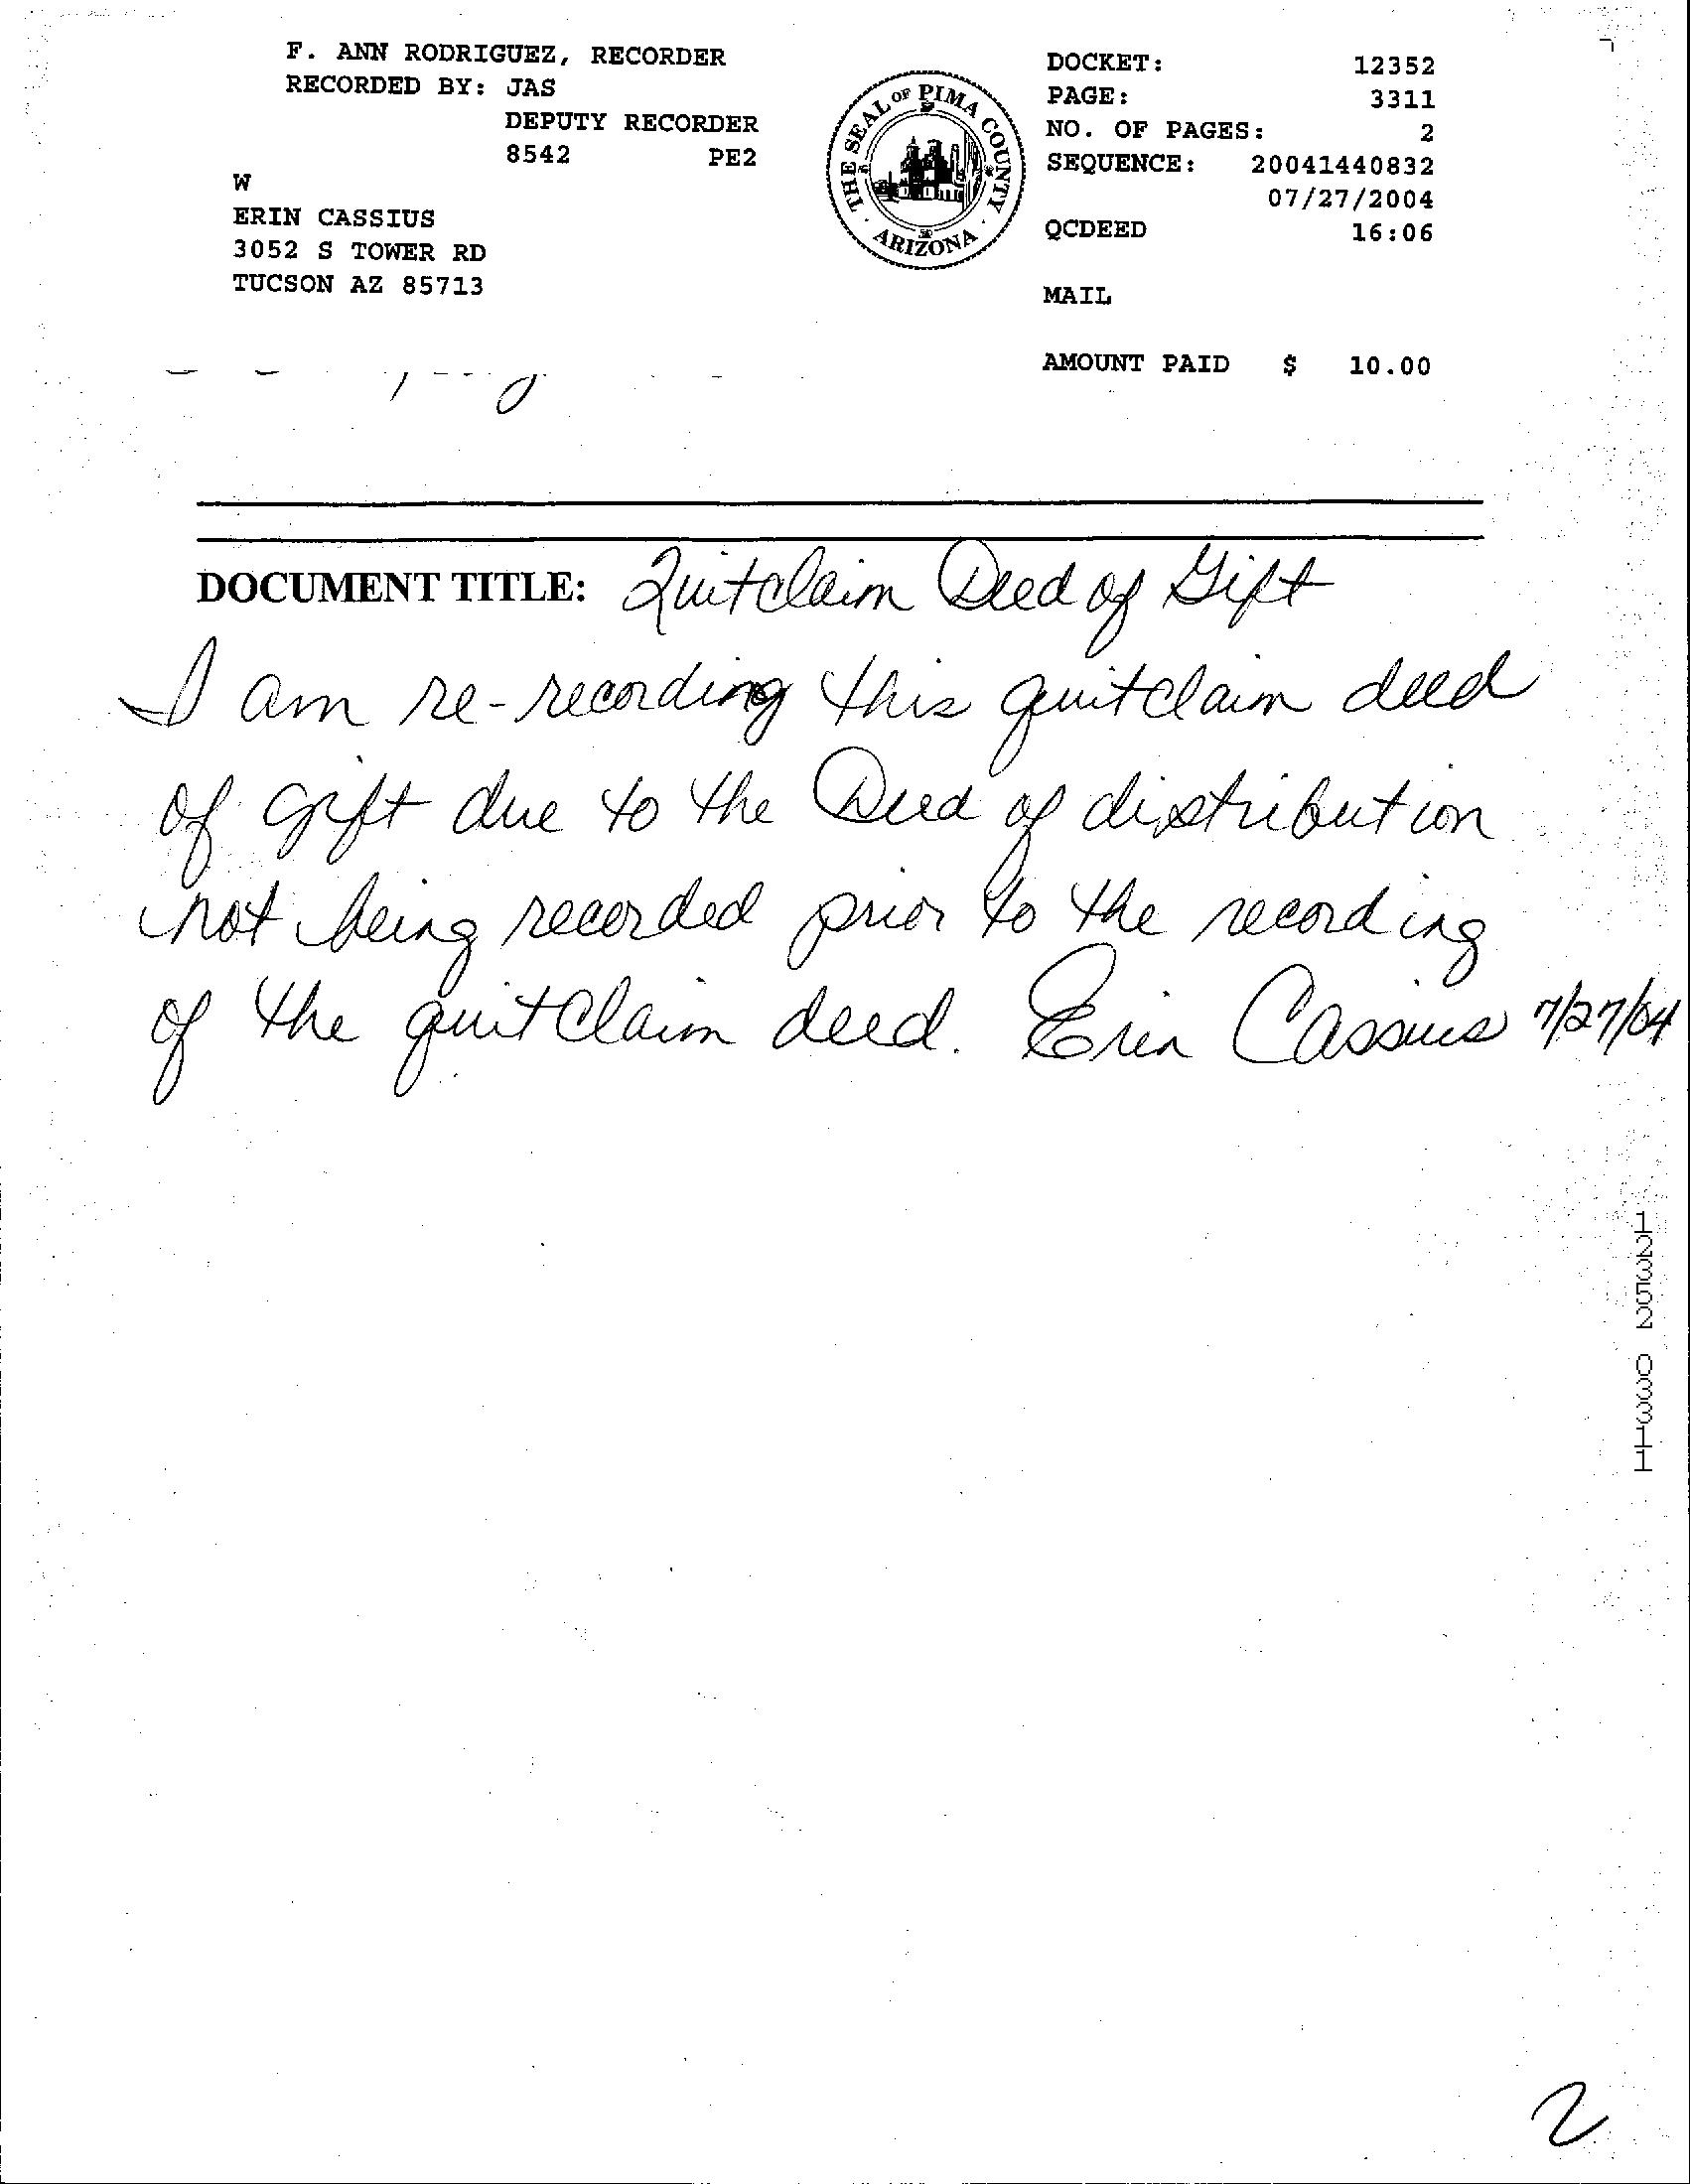 F. ANN RODRIGUEZ, RECORDER
RECORDED BY: JAS
DEPUTY RECORDER
8542 PE2
W
ERIN CASSIUS
3052 S TOWER RD
TUCSON AZ 85713
THE SEAL OF PIMA COUNTY
ARIZONA
DOCKET: 12352
PAGE: 3311
NO. OF PAGES: 2
SEQUENCE: 20041440832
07/27/2004
QCDEED 16:06
MAIL
AMOUNT PAID $ 10.00
DOCUMENT TITLE: Quitclaim Deed of Gift
I am re-recording this quitclaim deed
of gift due to the Deed of distribution
not being recorded prior to the recording
of the quitclaim deed. Erin Cassius 7/27/04
12352 03311
2